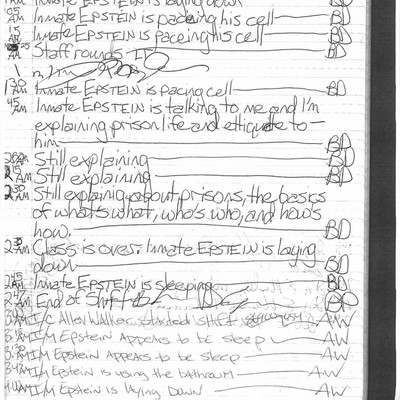 AM Inmate EPSTEIN is laying down BD
05 AM Inmate EPSTEIN is padeing his cell BD
15 AM Inmate EPSTEIN is paceing his cell BD
AM Staff rounds
130 AM Inmate EPSTEIN is pacing cell BD
45 AM Inmate EPSTEIN is talking to me and I'm
explaining prison life and ettiquete to
him BD
AM Still explaining BD
215 AM Still explaining BD
230 AM Still explainig about prisons, the basics
of what's what, who's who, and how's
how. BD
235 AM Class is over. Inmate EPSTEIN is laying
down BD
245 AM Inmate EPSTEIN is sleeping BD
247 AM End of Shift BD
3:00 AM I/C Allen Walker started shift AW
3:15 AM I/M Epstein Appears to be sleep AW
3:30 AM I/M Epstein Appears to be sleep AW
AM I/M Epstein is using the bathroom AW
AM I/M Epstein is laying Down AW